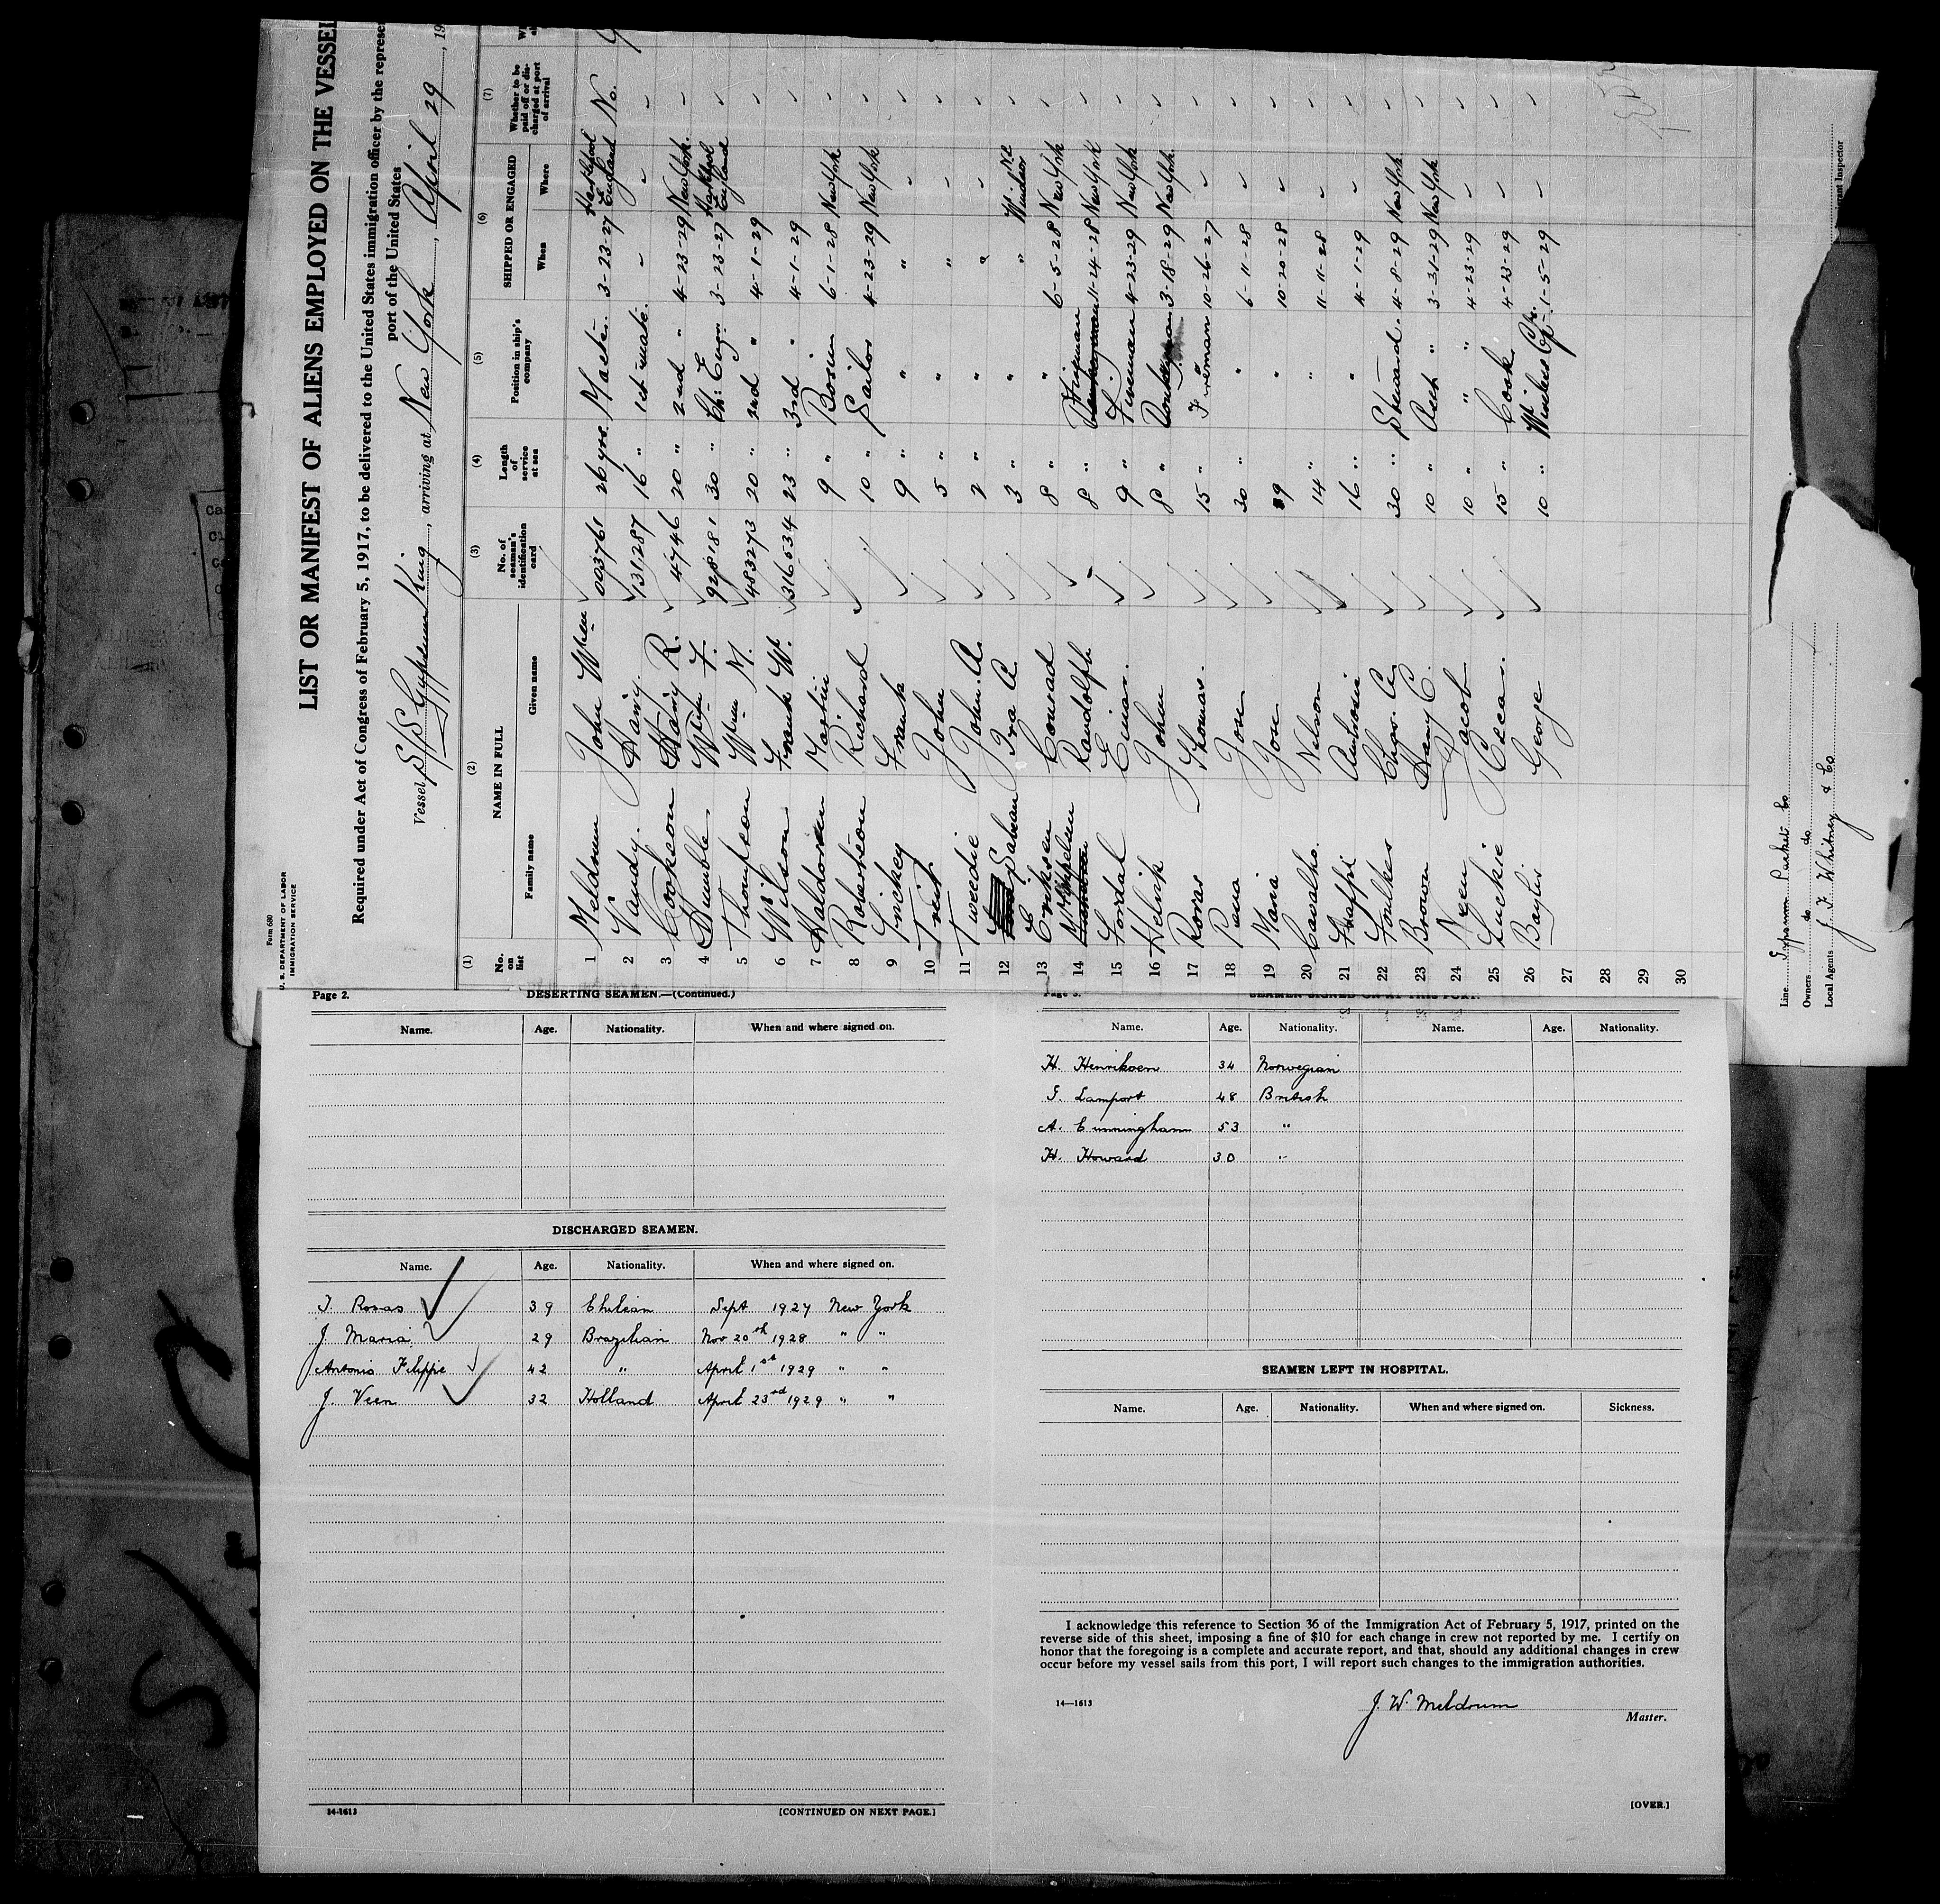 Form 680
U. S. DEPARTMENT OF LABOR
IMMIGRATION SERVICE
LIST OR MANIFEST OF ALIENS EMPLOYED ON THE VESSEL
Required under Act of Congress of February 5, 1917, to be delivered to the United States immigration officer by the represe
port of the United States
Vessel S/S Gypsum King, arriving at New York, April 29, 19
(1) (2) (3) (4) (5) (6) (7)
No. on list NAME IN FULL Family name Given name No. of seaman's identification card Length of service at sea Position in ship's company SHIPPED OR ENGAGED When Where Whether to be paid off or discharged at port of arrival
1 Meldrum John Wm 003761 26 yrs. Master 3-23-27 Hartlepool England No.
2 Vandy. Harry. 131287 16 " 1st mate. " "
3 Cookson Harry R. 4746 20 " 2nd " 4-23-29 New York.
4 Humble Wm F. 928181 30 " Ch: Engr 3-23-27 Hartlepool England
5 Thompson Wm M. 483273 20 " 2nd " 4-1-29
6 Wilson Frank W. 316534 23 " 3rd " 4-1-29
7 Haldorsen Martin 9 " Bosun 6-1-28 New York
8 Robertson Richard 10 " Sailor 4-23-29 New York
9 Frank 9 " " " "
10 John 5 " " " "
11 Tweedie John. A. 2 " " " "
12 Sabean Ira A. 3 " " " Windsor N.S.
13 Eriksen Conrad 8 " " 6-5-28 New York
14 Randolph 8 " Fireman 11-24-28 New York
15 Fordal Einar. 9 " Fireman 4-23-29 New York
16 Helvik John 8 " Donkeyman 3-18-29 New York.
17 Rosas Thomas. 15 " Fireman 10-26-27 "
18 Pena Jose 30 " " 6-11-28 "
19 Maria Jose 9 " 10-20-28 "
20 Cavalho. Nelson 14 " " 11-11-28 "
21 Antonio 16 " " 4-1-29 "
22 Foulkes Chas. A. 30 " Steward. 4-8-29 New York.
23 Brown Harry C. 10 " Asst " 3-31-29 New York
24 Veen Jacob 10 " " " 4-23-29 "
25 Luckie Oscar. 15 " Cook 4-23-29 "
26 Baylis George 10 " Wireless Opr. 1-5-29 "
27
28
29
30
Line Gypsum Packet Co
Owners do do
Local Agents J. F. Whitney & Co
rant Inspector
Page 2. DESERTING SEAMEN.—(Continued.)
Name. Age. Nationality. When and where signed on.
DISCHARGED SEAMEN.
Name. Age. Nationality. When and where signed on.
T. Rosas 39 Chilean Sept 1927 New York
J. Maria 29 Brazilian Nov 20th 1928 " "
Antonio Filippe 42 " April 1st 1929 " "
J. Veen 32 Holland April 23rd 1929 " "
14-1613 [CONTINUED ON NEXT PAGE.]
Page 3. SEAMEN SIGNED ON AT THIS PORT.
Name. Age. Nationality. Name. Age. Nationality.
H. Henriksen 34 Norwegian
G. Lamport 48 British
A. Cunningham 53 "
H. Howard 30 "
SEAMEN LEFT IN HOSPITAL.
Name. Age. Nationality. When and where signed on. Sickness.
I acknowledge this reference to Section 36 of the Immigration Act of February 5, 1917, printed on the
reverse side of this sheet, imposing a fine of $10 for each change in crew not reported by me. I certify on
honor that the foregoing is a complete and accurate report, and that, should any additional changes in crew
occur before my vessel sails from this port, I will report such changes to the immigration authorities.
14—1613
J. W. Meldrum
Master.
[OVER.]